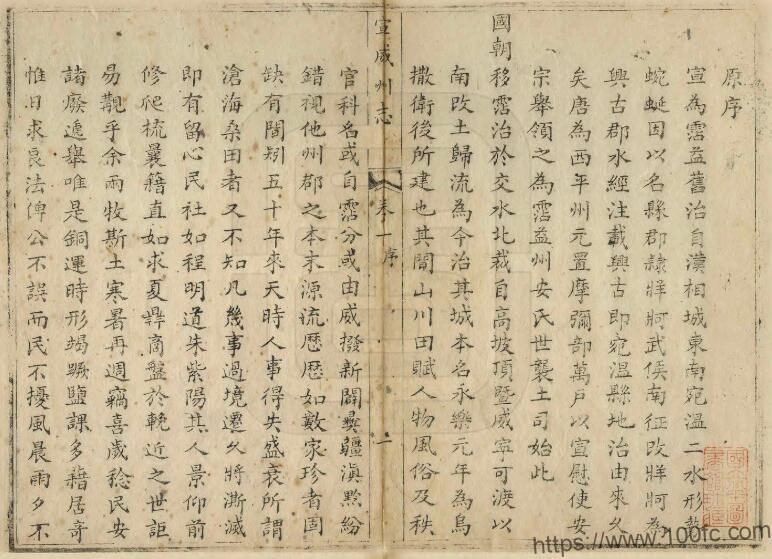 原序
宣為霑益舊治自漢相城東南宛溫二水形勢
蜿蜒因以名縣郡隸牂牁武侯南征改牂牁為
興古郡水經注載興古即宛溫縣地治由來久
矣唐為西平州元置摩彌部萬戶以宣慰使安
宗舉領之為霑益州安氏世襲土司始此
國朝移霑治於交水北裁自高坡頂暨威寧可渡以
南改土歸流為今治其城本名永樂元年為烏
撒衛後所建也其間山川田賦人物風俗及秩
宣威州志
卷一序
一
官科名或自霑分或由威撥新闢彝疆滇黔紛
錯視他州郡之本末源流歷歷如數家珍者固
缺有間矧五十年來天時人事得失盛衰所謂
滄海桑田者又不知凡幾事過境遷久將澌滅
即有留心民社如程明道朱紫陽其人景仰前
修爬梳曩籍直如求夏鼎商盤於輓近之世詎
易觀乎余兩牧斯土寒暑再週竊喜歲稔民安
諸廢遞舉唯是銅運時形竭蹶鹽課多藉居奇
惟日求良法俾公不誤而民不擾風晨雨夕不
https://www.100fc.com